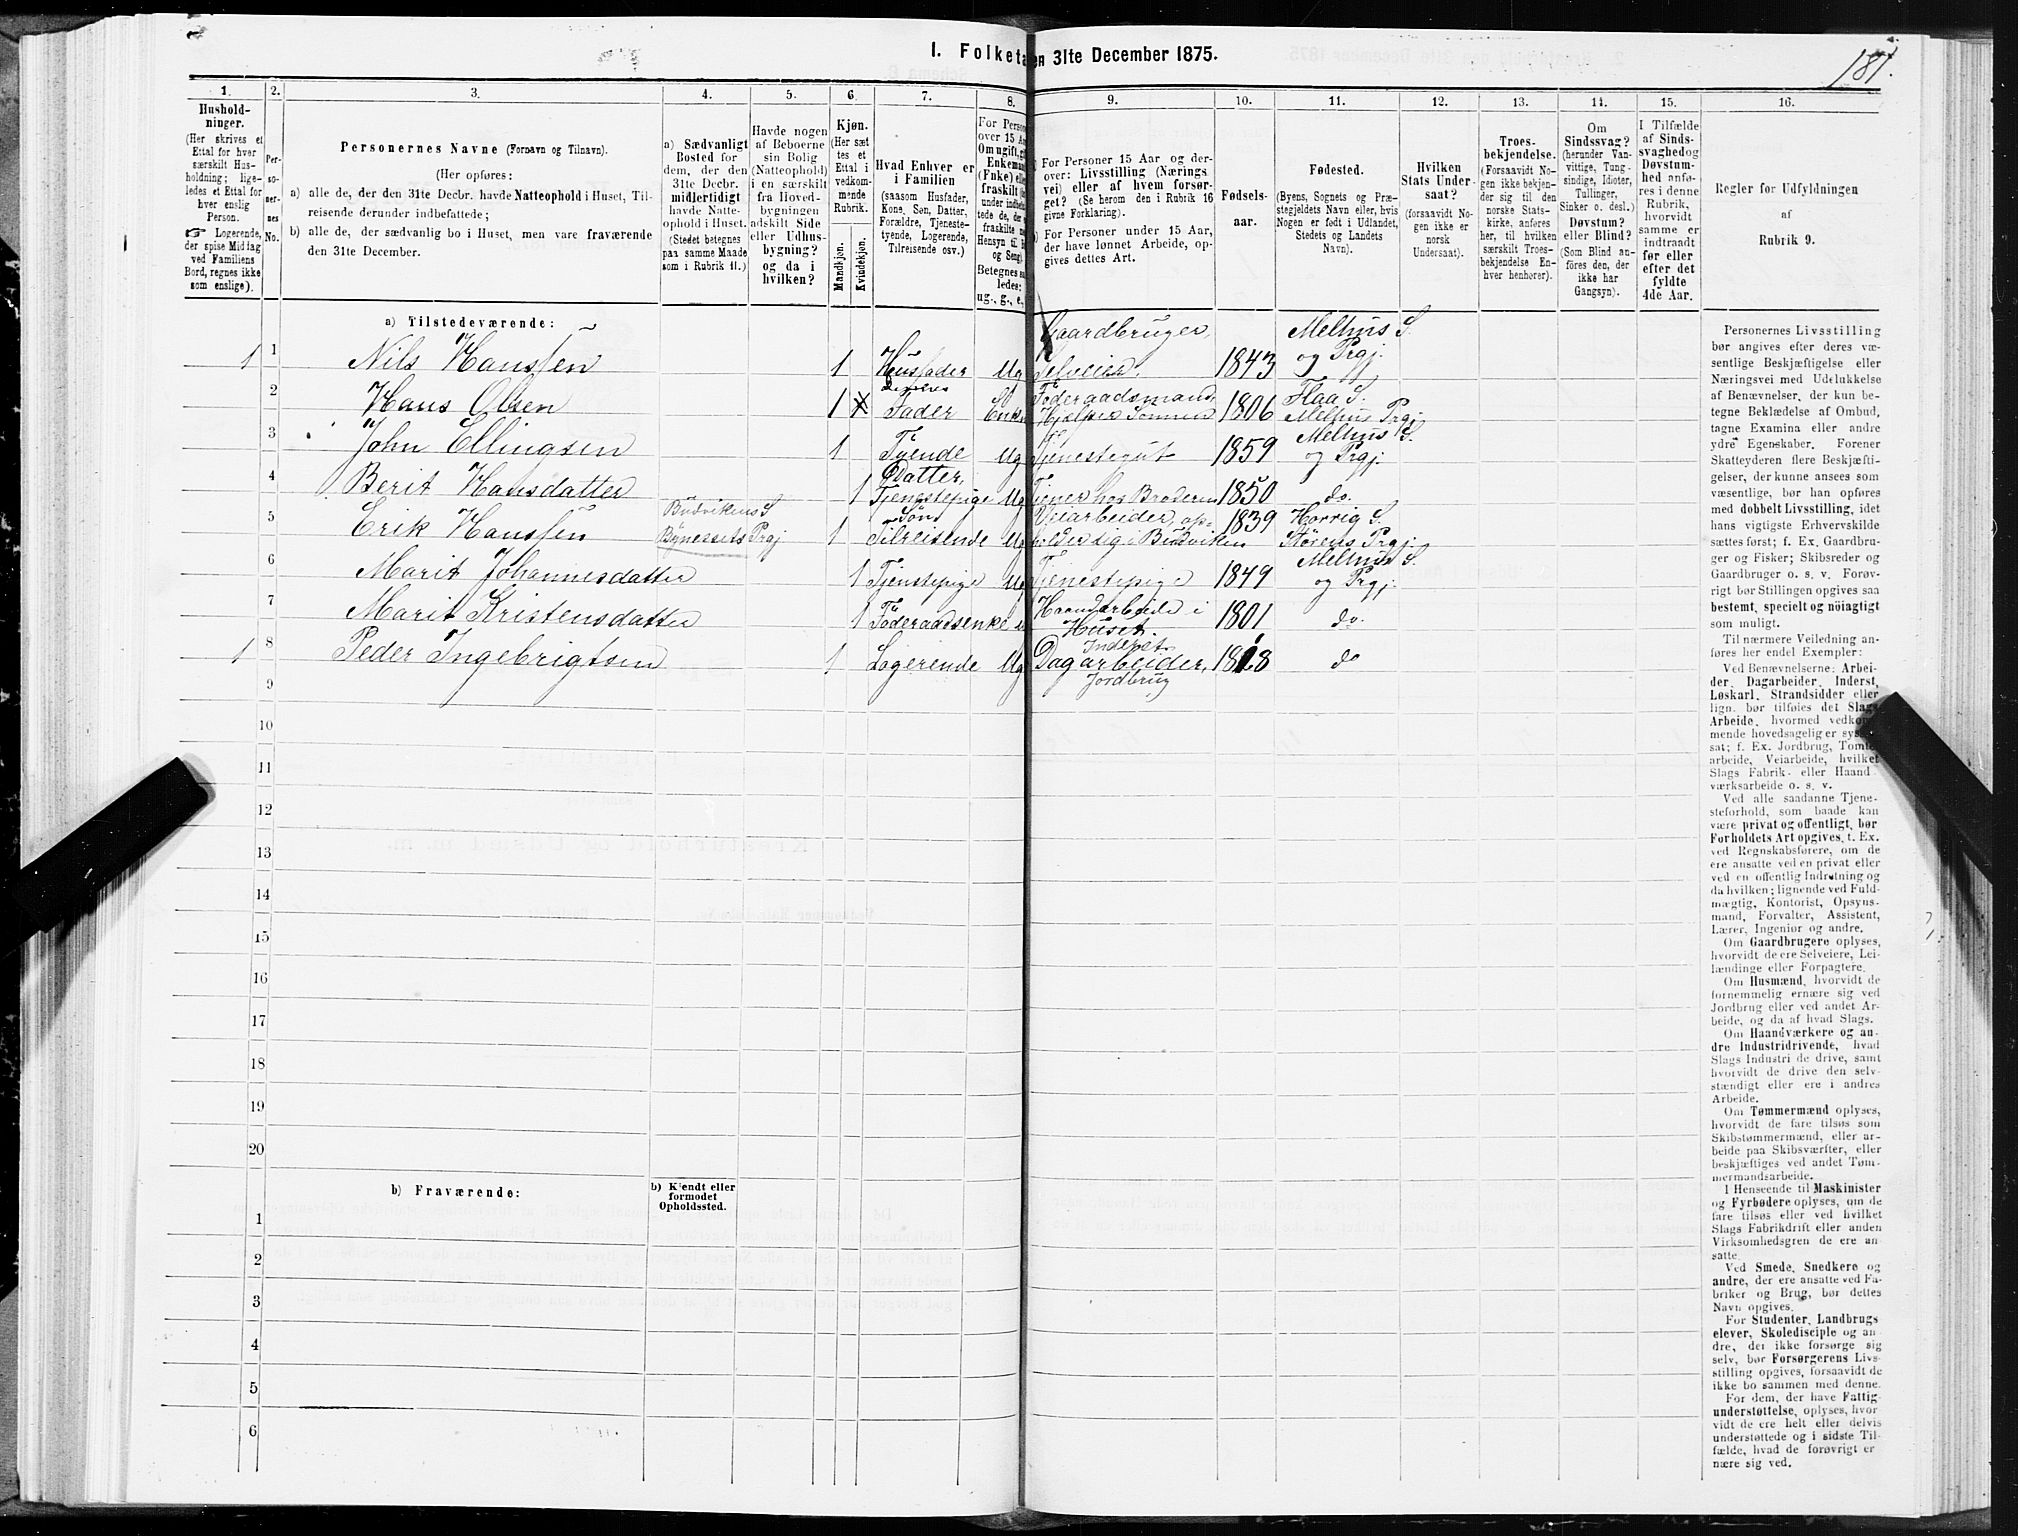 1. Folketæ en 31te December 1875.
181.
1. 2. 3. 4. 5. 6. 7. 8. 9. 10. 11. 12. 13. 14. 15. 16.
Hushold-
ninger.
(Her skrives et
Ettal for hver
særskilt Hus-
holdning; lige-
ledes et Ettal for
hver enslig
Person.
☞ Logerende,
der spise Middag
ved Familiens
Bord, regnes ikke
som enslige).
Per-
so-
ner-
nes
No.
Personernes Navne (Fornavn og Tilnavn).
(Her opføres:
a) alle de, der den 31te Decbr. havde Natteophold i Huset, Til-
reisende derunder indbefattede;
b) alle de, der sædvanlig bo i Huset, men vare fraværende
den 31te December.
a) Sædvanligt
Bosted for
dem, der den
31te Decbr.
midlertidigt
havde Natte-
ophold i Huset.
(Stedet betegnes
paa samme Maade
som i Rubrik 11.)
Havde nogen
af Beboerne
sin Bolig
(Natteophold)
i en særskilt
fra Hoved-
bygningen
adskilt Side
eller Udhus-
bygning?
og da i
hvilken?
Kjøn.
(Her sæt
tes et
Ettal i
vedkom-
mende
Rubrik.
Mandkjøn.
Kvindekjøn.
Hvad Enhver er
i Familien
(saasom Husfader,
Kone, Søn, Datter,
Forældre, Tjeneste-
tyende, Logerende,
Tilreisende osv.)
For Person
over 15 Aa
Om ugift, gi
Enkeman
(Enke) elle
fraskilt (h
under indbe
tede de, de
fraskilte m
Hensyn til
og Seng).
Betegnes sa
ledes:
ug., g., e.,
For Personer 15 Aar og der-
over: Livsstilling (Nærings
vei) eller af hvem forsør-
get? (Se herom den i Rubrik 16
givne Forklaring).
For Personer under 15 Aar,
der have lønnet Arbeide, op-
gives dettes Art.
Fødsels-
aar.
Fødested.
(Byens, Sognets og Præ-
stegjeldets Navn eller, hvis
Nogen er født i Udlandet,
Stedets og Landets
Navn).
Hvilken
Stats Under-
saat?
(forsaavidt No-
gen ikke er
norsk
Undersaat).
Troes-
bekjendelse.
(Forsaavidt No-
gen ikke bekjen-
der sig til den
norske Stats-
kirke, anføres
her, til hvilken
særskilt Troes-
bekjendelse En-
hver henhører).
Om
Sindssvag?
(herunder Van-
vittige, Tung-
sindige, Idioter,
Tullinger,
Sinker o. desl.)
Døvstum?
eller Blind?
(Som Blind an-
føres den, der
ikke har
Gangsyn).
I Tilfælde
af Sinds-
svaghed og
Døvstum-
hed anfø-
res i denne
Rubrik,
hvorvidt
samme er
indtraadt
før eller
efter det
fyldte
4de Aar.
Regler for Udfyldningen
af
Rubrik 9.
a) Tilstedeværende:
1 1 Nils Hansen 1 Husfader Ug Gaardbruger, Selveier. 1843 Melhus S. og Prgj.
2 Hans Olsen 1 Fader Enkem Föderaadsmand, Hjelper Sönnen 1806 Flaa S. Melhus Prgj.
3 John Ellingsen 1 Tyende Ug Tjenestegut 1859 Melhus S. og Prgj.
4 Berit Hansdatter 1 Datter, Tjenestepige Ug Tjener hos Broderen 1850 do.
5 Erik Hansen Budvikens S Bynessets Prgj 1 Sön Tilreisende Ug Veiarbeider, op- holder sig i Budviken 1839 Horrig S. Störens Prgj.
6 Marit Johannesdatter 1 Tjenstepige Ug Tjenestepige 1849 Melhus S. og Prgj.
7 Marit Kristensdatter 1 Föderaadsenke Haandarbeide i Huset. 1801 do.
1 8 Peder Ingebrigtsen 1 Logerende Ug Indepst Dagarbeider, Jordbrug 1818 do
9
10
11
12
13
14
15
16
17
18
19
20
b) Fraværende:
b) Kjendt eller
formodet
Opholdssted.
1
2
3
4
5
6
Personernes Livsstilling
bør angives efter deres væ-
sentlige Beskjæftigelse eller
Næringsvei med Udelukkelse
af Benævnelser, der kun be-
tegne Beklædelse af Ombud,
tagne Examina eller andre
ydre Egenskaber. Forener
Skatteyderen flere Beskjæfti-
gelser, der kunne ansees som
væsentlige, bør han opføres
med dobbelt Livsstilling, idet
hans vigtigste Erhvervskilde
sættes først; f. Ex. Gaardbru-
ger og Fisker; Skibsreder og
Gaardbruger o. s. v. Forøv-
rigt bør Stillingen opgives saa
bestemt, specielt og nöiagtigt
som muligt.
Til nærmere Veiledning an-
føres her endel Exempler:
Ved Benævnelserne: Arbei-
der, Dagarbeider, Inderst,
Løskarl, Strandsidder eller
lign. bør tilføies det Slags
Arbeide, hvormed vedkom-
mende hovedsagelig er syssel-
sat; f. Ex. Jordbrug, Tomte-
arbeide, Veiarbeide, hvilket
Slags Fabrik- eller Haand-
værksarbeide o. s. v.
Ved alle saadanne Tjene-
steforhold, som baade kan
være privat og offentligt, bør
Forholdets Art opgives, t. Ex.
ved Regnskabsførere, om de
ere ansatte ved en privat eller
ved en offentlig Indretning og
da hvilken; lignende ved Fuld-
mægtig, Kontorist, Opsyns-
mand, Forvalter, Assistent,
Lærer, Ingeniør og andre.
Om Gaardbrugere oplyses,
hvorvidt de ere Selveiere, Lei-
lændinge eller Forpagtere.
Om Husmænd, hvorvidt de
fornemmelig ernære sig ved
Jordbrug eller ved andet Ar-
beide, og da af hvad Slags.
Om Haandværkere og an-
dre Industridrivende, hvad
Slags Industri de drive, samt
hvorvidt de drive den selv-
stændigt eller ere i andres
Arbeide.
Om Tømmermænd oplyses,
hvorvidt de fare tilsøs som
Skibstømmermænd, eller ar-
beide paa Skibsværfter, eller
beskjæftiges ved andet Tøm-
mermandsarbeide.
I Henseende til Maskinister
og Fyrbødere oplyses, om de
fare tilsøs eller ved hvilket
Slags Fabrikdrift eller anden
Virksomhedsgren de ere an-
satte.
Ved Smede, Snedkere og
andre, der ere ansatte ved Fa-
briker og Brug, bør dettes
Navn opgives.
For Studenter, Landbrugs
elever, Skoledisciple og an-
dre, der ikke forsørge sig
selv, bør Forsørgerens Livs-
stilling opgives, forsaavidt de
ikke bo sammen med denne.
For dem, der have Fattig-
understøttelse, oplyses, hvor-
vidt de ere helt eller delvis
understøttede og i sidste Til-
fælde, hvad de forøvrigt er
nære sig ved.